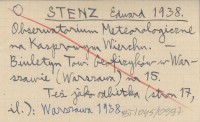 STENZ Edward 1938.
Obserwatorium Meteorologiczne
na Kasprowym Wierchu. —
Biuletyn Tow. Geofizyków w War-
szawie (Warszawa) nr 15.
Też jako odbitka (stron 17,
il.): Warszawa 1938.